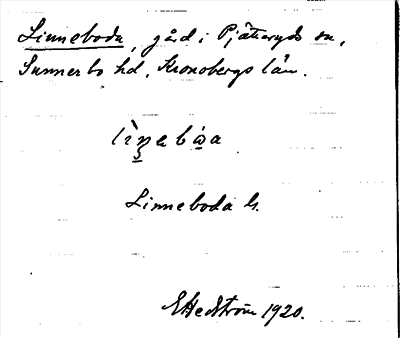 Linneboda, gård i Pjätteryds sn,
Sunnerbo hd, Kronobergs län.
Linneboda h.
EHedström 1920.